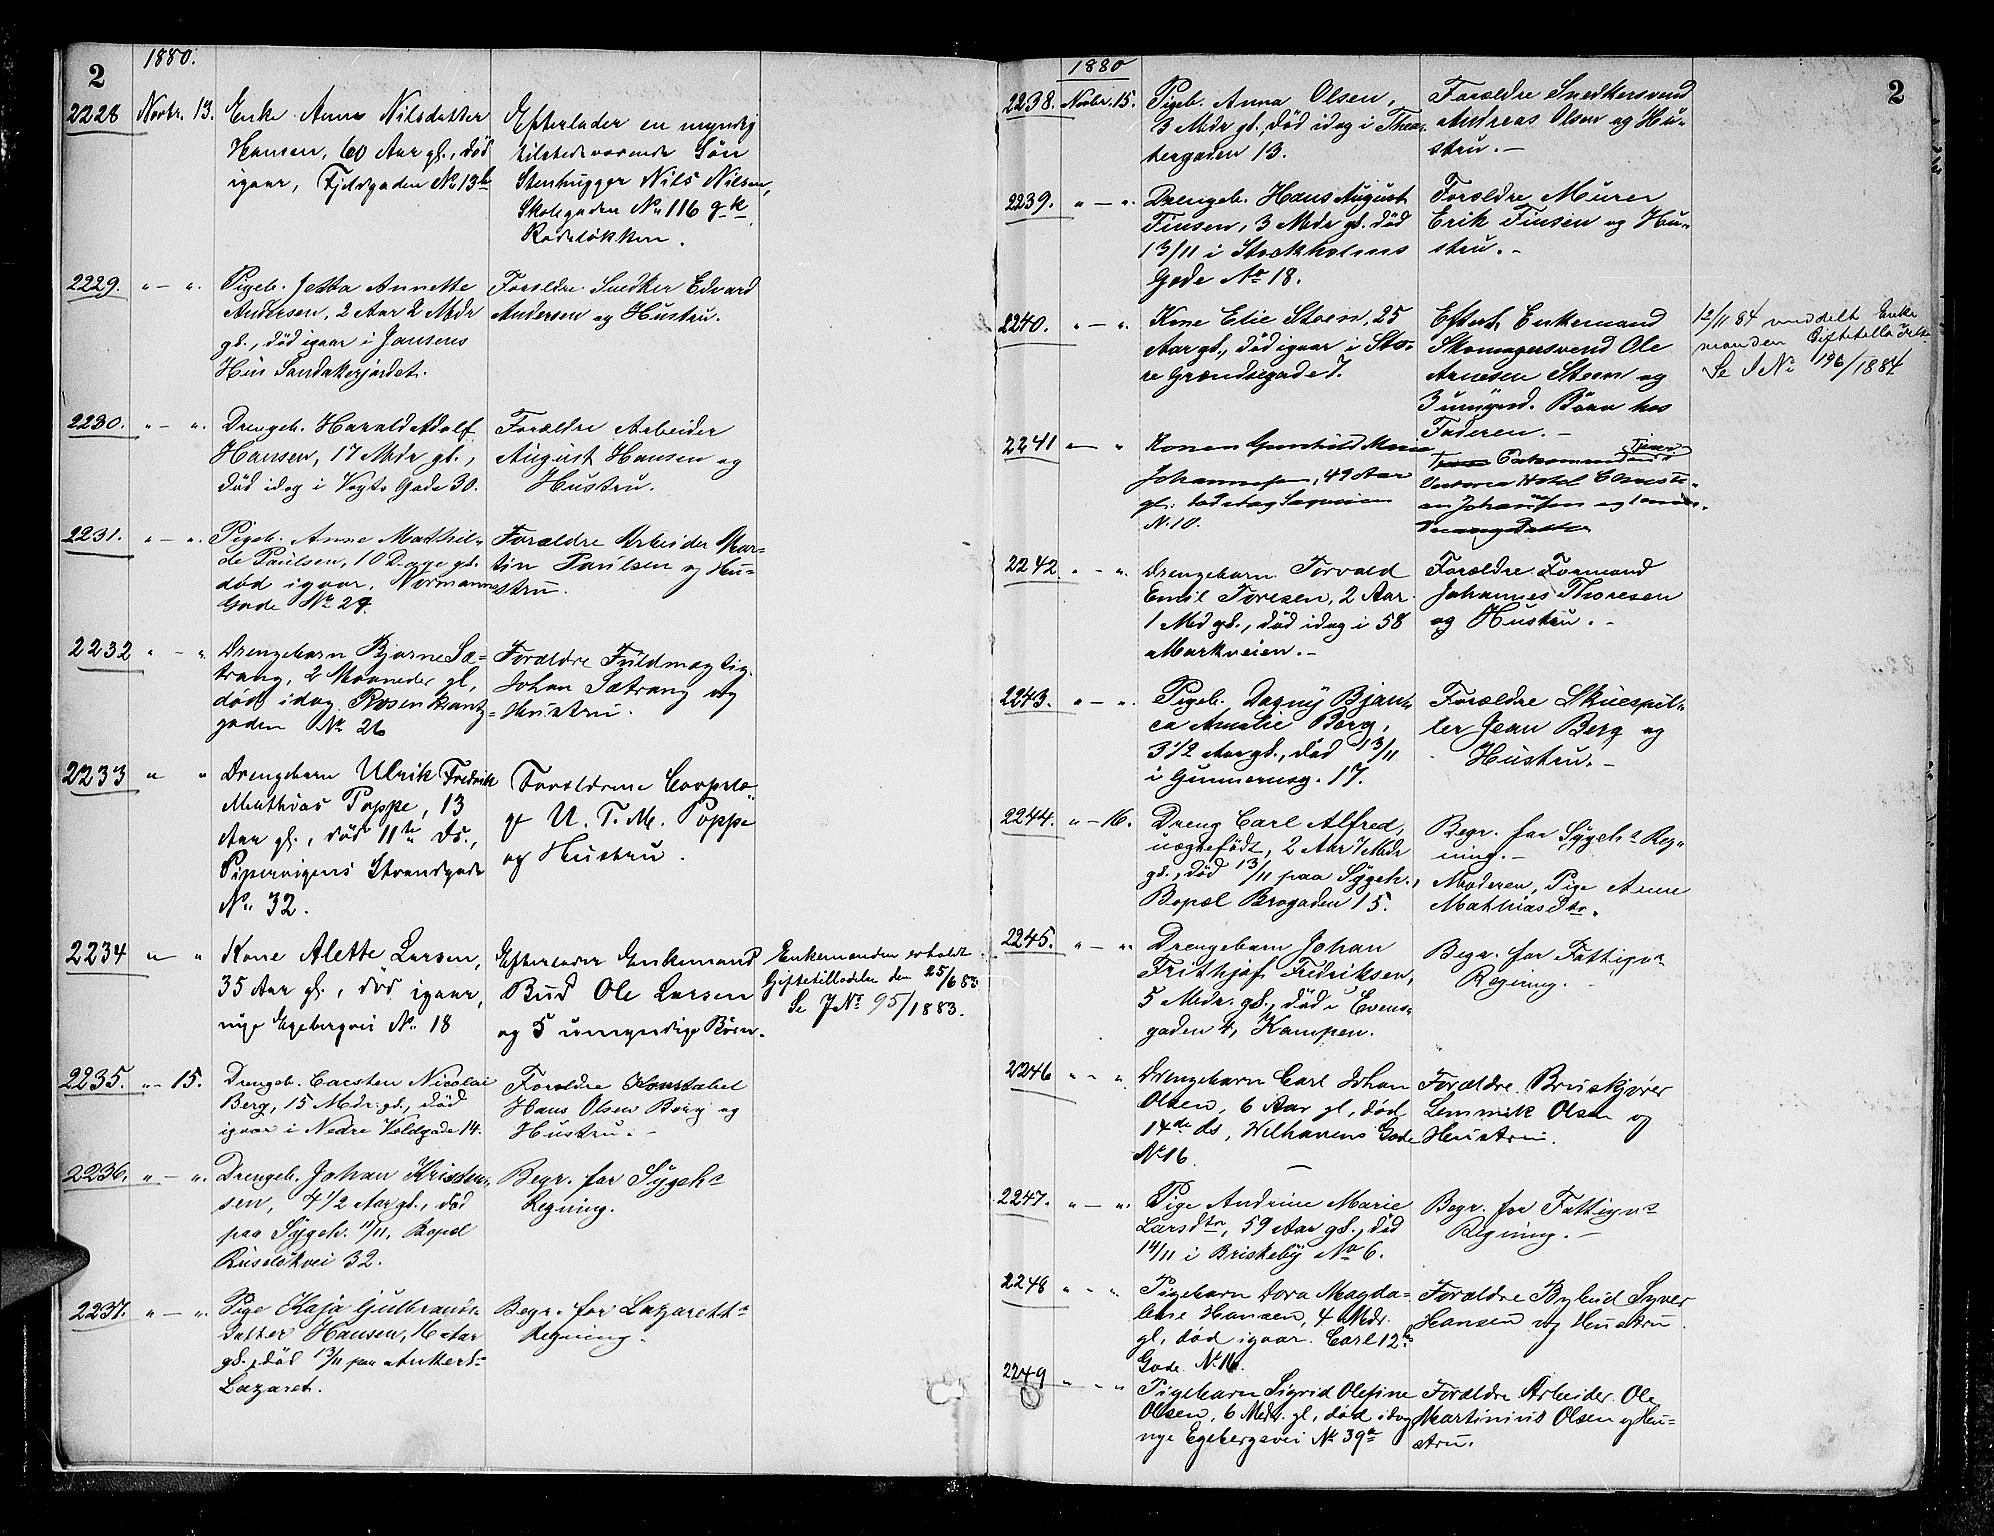 2
1880.
2228 Novbr. 13. Enke Anne Nilsdatter
Hansen, 60 Aar gl., død
igaar, Fjeldgaden No 13b
Efterlader en myndig
tilstedeværende Søn
Stenhugger Nils Nilsen,
Skolegaden No 116
Rodeløkken.
2229. " — " Pigeb. Jetta Annette
Andersen, 2 Aar 2 Mdr
gl., død igaar i Jansens
Hus Sandakerjordet.
Forældre Snedker Edvard
Andersen og Hustru.
2230. " — " Drengeb. Harald Adolf
Hansen, 17 Mdr gl.,
død idag i Vogts Gade 30.
Forældre Arbeider
August Hansen og
Hustru.
2231. " — " Pigeb. Anne Mathil-
de Paulsen, 10 Dage gl.
død igaar, Normanns
Gade No 29.
Forældre Arbeider Mar-
tin Paulsen og Hu-
stru.
2232 " — " Drengebarn Bjarne Sæ-
trang, 2 Maaneder gl,
død idag Rosenkrantz-
gaden No 26
Forældre Fuldmægtig
Johan Sætrang og
Hustru.
2233 " " Drengebarn Ulrik Fredrik
Mathias Poppe, 13
Aar gl., død 11te ds.,
Pipervigens Strandgade
No 32.
Forældrene
U. T. M. Poppe
og Hustru.
2234 " " Kone Alette Larsen,
35 Aar gl., død igaar,
nye Egebergvei No 18
Efterlader Enkemand
Bud Ole Larsen
og 5 umyndige Børn.
Enkemanden erholdt
Giftetilladelse den 25/6 83
Se J No 95/1883.
2235. " — 15. Drengeb. Carsten Nicolai
Berg, 15 Mdr gl., død
igaar i Nedre Voldgade 14.
Forældre Konstabel
Hans Olsen Berg og
Hustru. —
2236. " — " Drengeb. Johan Kristen-
sen, 4 1/2 Aar gl., død
paa Sygeh. 11/11, Bopæl
Ruseløkvei 32.
Begr. for Sygehs
Regning.
2237. " — " Pige Kaja Gulbrands-
datter Hansen, 16 Aar
gl., død 13/11 paa Ankerl-
Lazaret.
Begr. for Lazarets
Regning.
2
1880
2238. Novbr. 15. Pigeb. Anna Olsen,
3 Mdr gl., død idag i Thea-
tergaden 13.
Forældre Snedkersvend
Andreas Olsen og Hu-
stru. —
2239. " — " Drengeb. Hans August
Finsen, 3 Mdr gl. død
13/11 i Stockholms
Gade No 18.
Forældre Murer
Erik Finsen og Hu-
stru. —
2240. " — " Kone Elie Steen, 25
Aar gl., død igaar i Sto-
re Grændsegade 7.
Efterl. Enkemand
Skomagersvend Ole
Arnesen Steen og
3 umynd. Børn hos
Faderen. —
12/11 84 meddelt Enke-
manden
Se J No 196/1884
2241 " " Konen Gunhild Marie
Johannesen, 49 Aar
gl.
N. 10.
Enkemanden
Victoria Hotel Christi-
an Johansen og
2242 " — " Drengebarn Torvald
Emil Toresen, 2 Aar
1 Md gl., død idag i 58
Markveien. —
Forældre Formand
Johannes Thoresen
og Hustru. —
2243. " — " Pigeb. Dagny Bjan-
ca Amalie Berg,
3 1/2 Aar gl., død 13/11
i Gunnerusg. 17.
Forældre Skuespil-
ler Jean Berg og
Hustru. —
2244. " — 16. Dreng Carl Alfred,
uægtefødt, 2 Aar 7 Mdr
gl., død 13/11 paa Sygeh.,
Bopæl Brogaden 15.
Begr. for Sygehs Reg-
ning. —
Moderen, Pige Anne
Mathiasdtr.
2245. " — " Drengebarn Johan
Frithjof Fredriksen,
5 Mdr. gl., død i Evens-
gaden 4, Kampen.
Begr. for Fattigvs
Regning. —
2246 " — " Drengebarn Carl Johan
Olsen, 6 Aar gl, død
14de ds, Welhavens Gade
No 16
Forældre Bruskjører
Lemmik Olsen og
Hustru.
2247. " — " Pige Andrine Marie
Larsdtr, 59 Aar gl., død
14/11 i Briskeby No 6.
Begr. for Fattigvs
Regning. —
2248 " " " Pigebarn Dora Magda-
lene Hansen, 4 Mdr.
gl, død igaar. Carl 12s
Gade No 16.
Forældre Bybud Syver
Hansen og Hustru.
2249 " " " Pigebarn Sigrid Olefine
Olsen, 6 Mdr. gl, død idag
nye Egebergsvei No 39a
Forældre Arbeider Ole
Martinius Olsen og Hu-
stru.